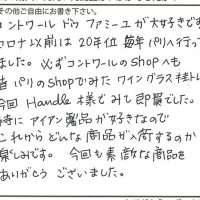 その他ご自由にお書き下さい。
コントワール ドゥ ファミーユが大好きです
コロナ以前は20年位 毎年パリへ行って
ました。必ずコントワールのshopへも
昔パリのshopでみた ワイングラス
今回 Handle様でみし即買でした。
特に アイアン製品が好きなので
これからどんな商品が入荷するのか
楽しみです。 今回も素敵な商品を
ありがとう ございました。